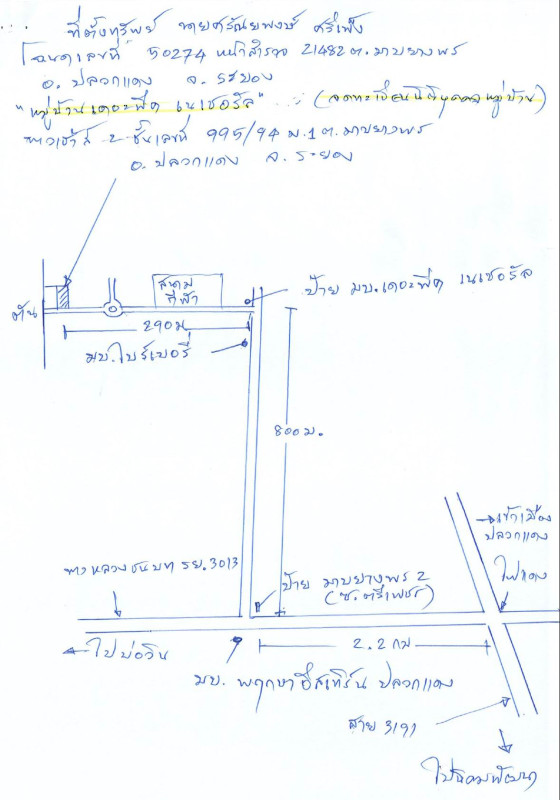 ที่ตั้งทรัพย์ นายศรัณยพงษ์ ศรีเพ็ง
โฉนดเลขที่ 50274 หน้าสำรวจ 2148 ต.มาบยางพร
อ. ปลวกแดง จ. ระยอง
"หมู่บ้านเดอะพีค เนเชอรัล" (จดทะเบียนนิติบุคคลหมู่บ้าน)
ทาวเฮ้าส์ 2 ชั้นเลขที่ 995/94 ม.1 ต.มาบยางพร
อ. ปลวกแดง จ. ระยอง
สนาม
กีฬา
ป้าย มบ.เดอะพีค เนเชอรัล
ตัน
290 ม
มบ.ไบร์เบอรี่
800 ม.
เข้าเมือง
ปลวกแดง
ไฟแดง
ทางหลวงชนบท รย.3013
ป้าย มาบยางพร 2
(ซ.ตรีเพชร)
ไปบ่อวิน
2.2 กม
มบ. พฤกษาอีสเทิร์น ปลวกแดง
สาย 3191
ไปนิคมพัฒนา